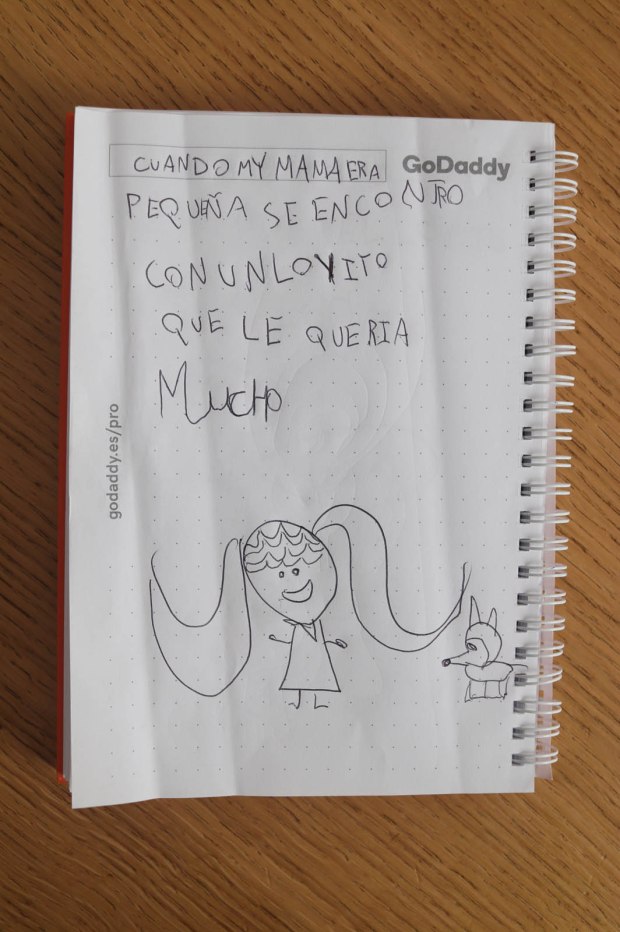 CUANDO MY MAMA ERA
GoDaddy
PEQUEÑA SE ENCONTRO
CON UN LOVITO
QUE LE QUERIA
MUCHO
godaddy.es/pro